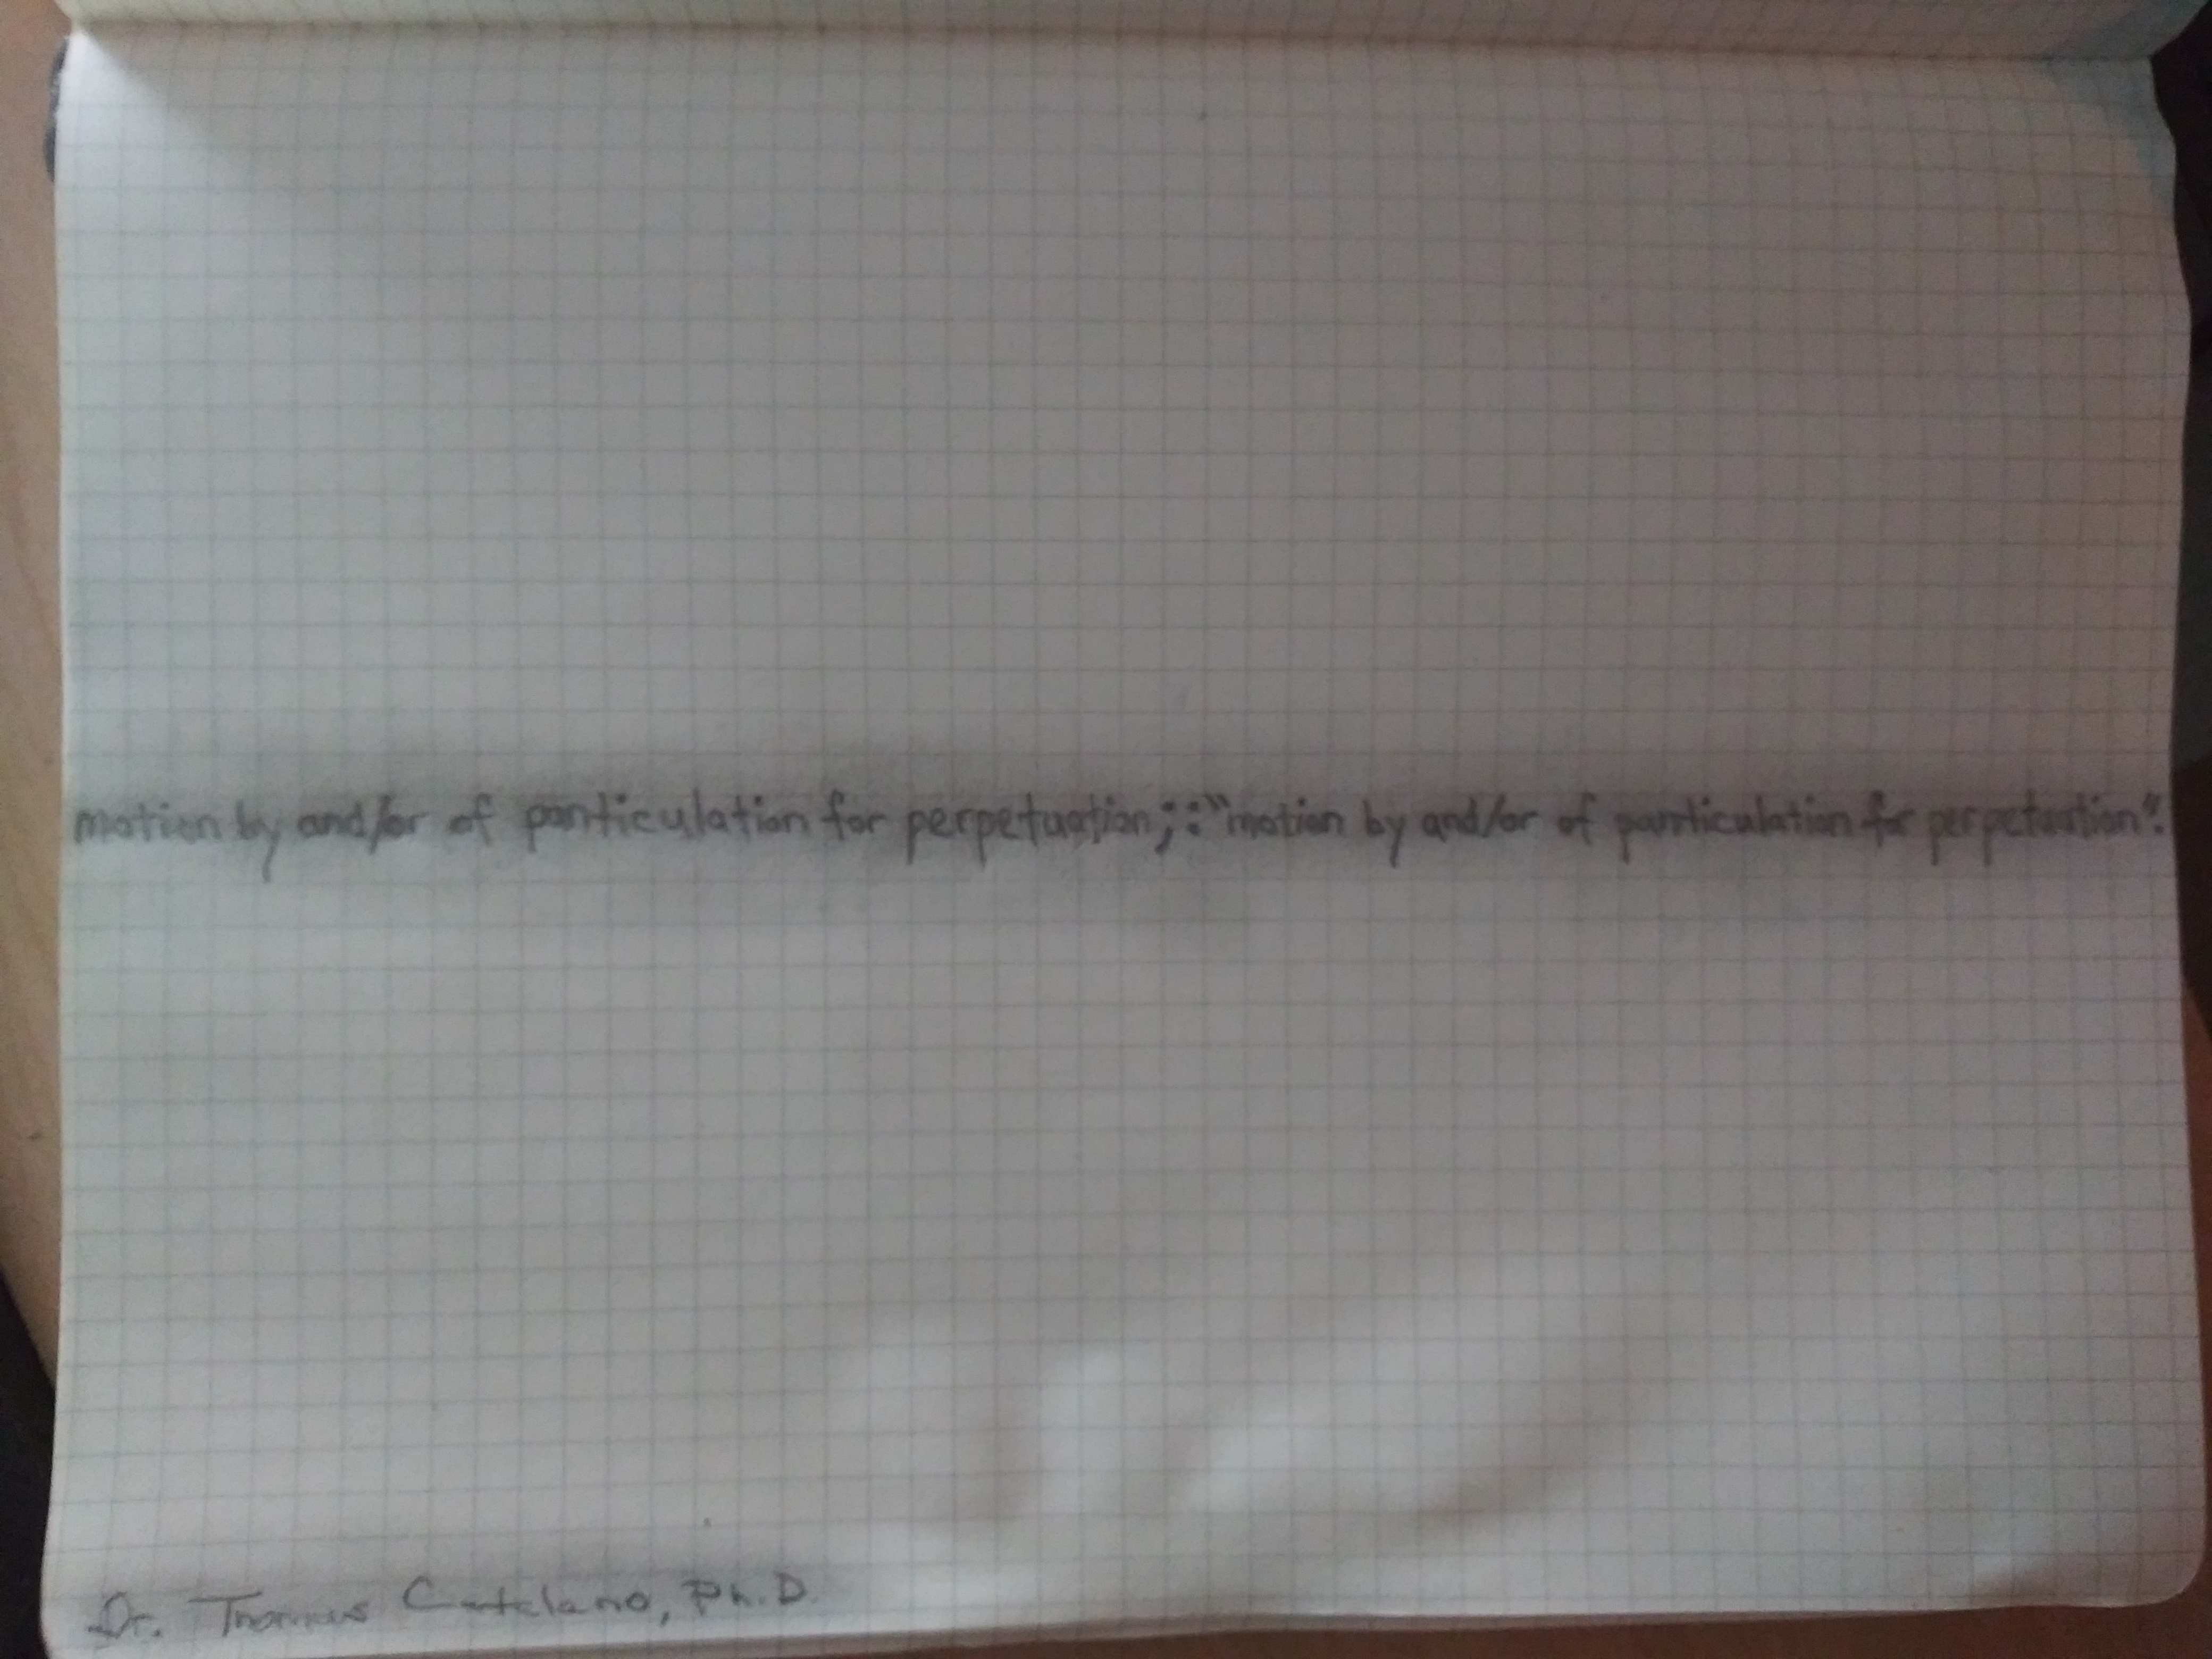 motion by and/or of particulation for perpetuation;:"motion by and/or of particulation for perpetuation".
Dr. Thomas Catalano, Ph.D.